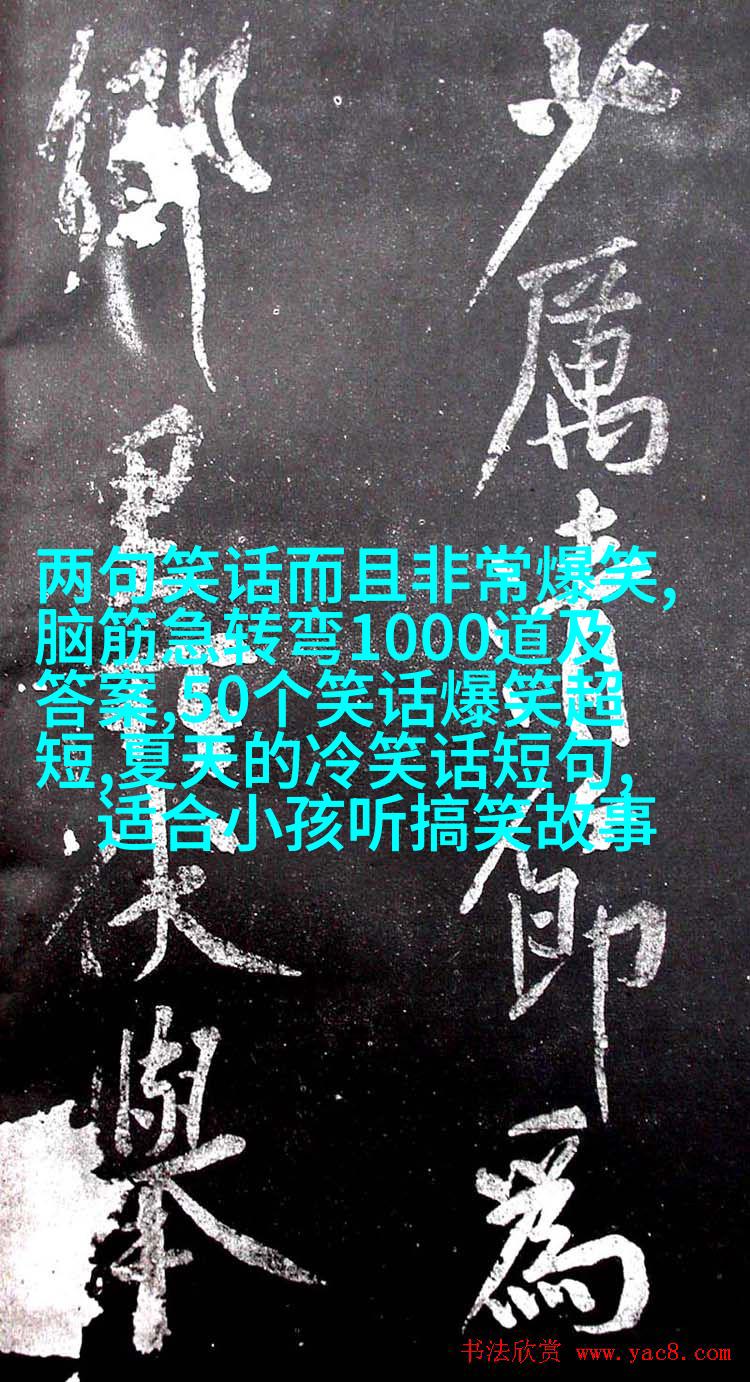 少厲清節為
鄉里伏舉
两句笑话而且非常爆笑,
脑筋急转弯1000道及
答案,50个笑话爆笑超
短,夏天的冷笑话短句,
适合小孩听搞笑故事
书法欣赏 www.yac8.com